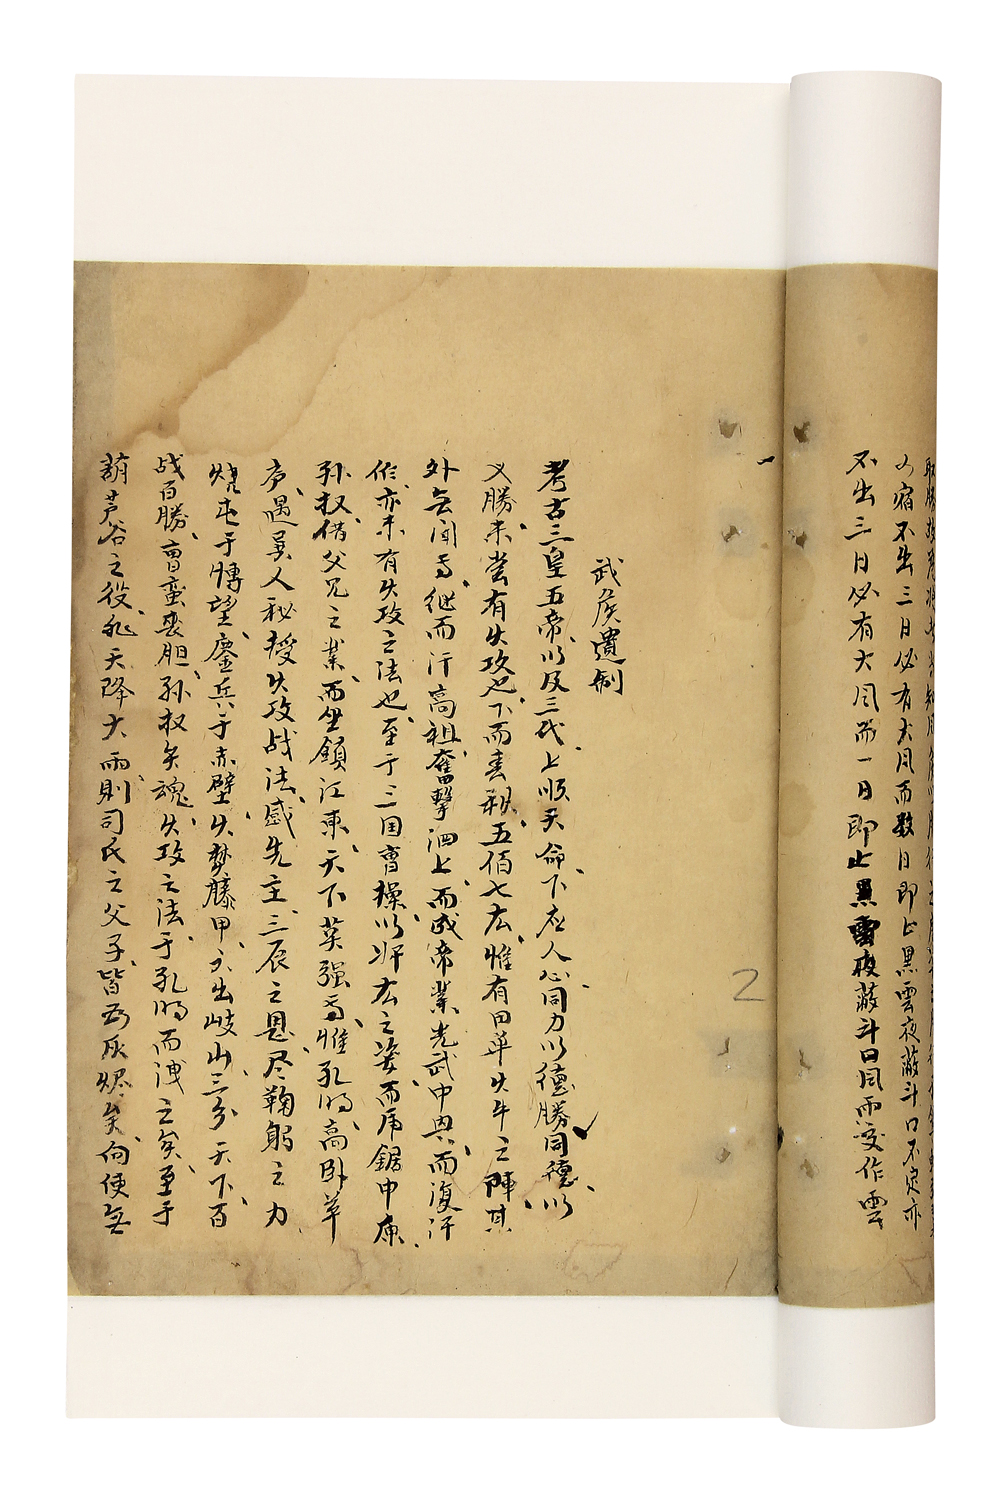 不出三日必有大風而数日即止黒雲夜蔽斗口不定亦
不出三日必有大風而一日即止黒雲夜蔽斗口風雨交作雲
2
武侯遺制
考古三皇五帝以及三代上順天命下应人心同力以德勝同德以
义勝未嘗有火攻也下而春秋五伯七広惟有田单火牛之陣其
外無闻焉继而汗高祖奮擊泗上而成帝業光武中興而復汗
作亦未有火攻之法也至于三国曹操以奸広之姿而虎鋸中原
孙权借父兄之業而坐鎮江東天下莫强焉惟孔明高卧草
庐遇異人秘授火攻战法感先主三辰之恩尽鞠躬之力
燒屯于博望鏖兵于赤壁火焚籐甲六出岐山三分天下百
战百勝曹蛮丧胆孙权失魂火攻之法于孔明而洩之矣至于
葫芦谷之役非天降大雨則司氏之父子皆为灰燼矣向使無